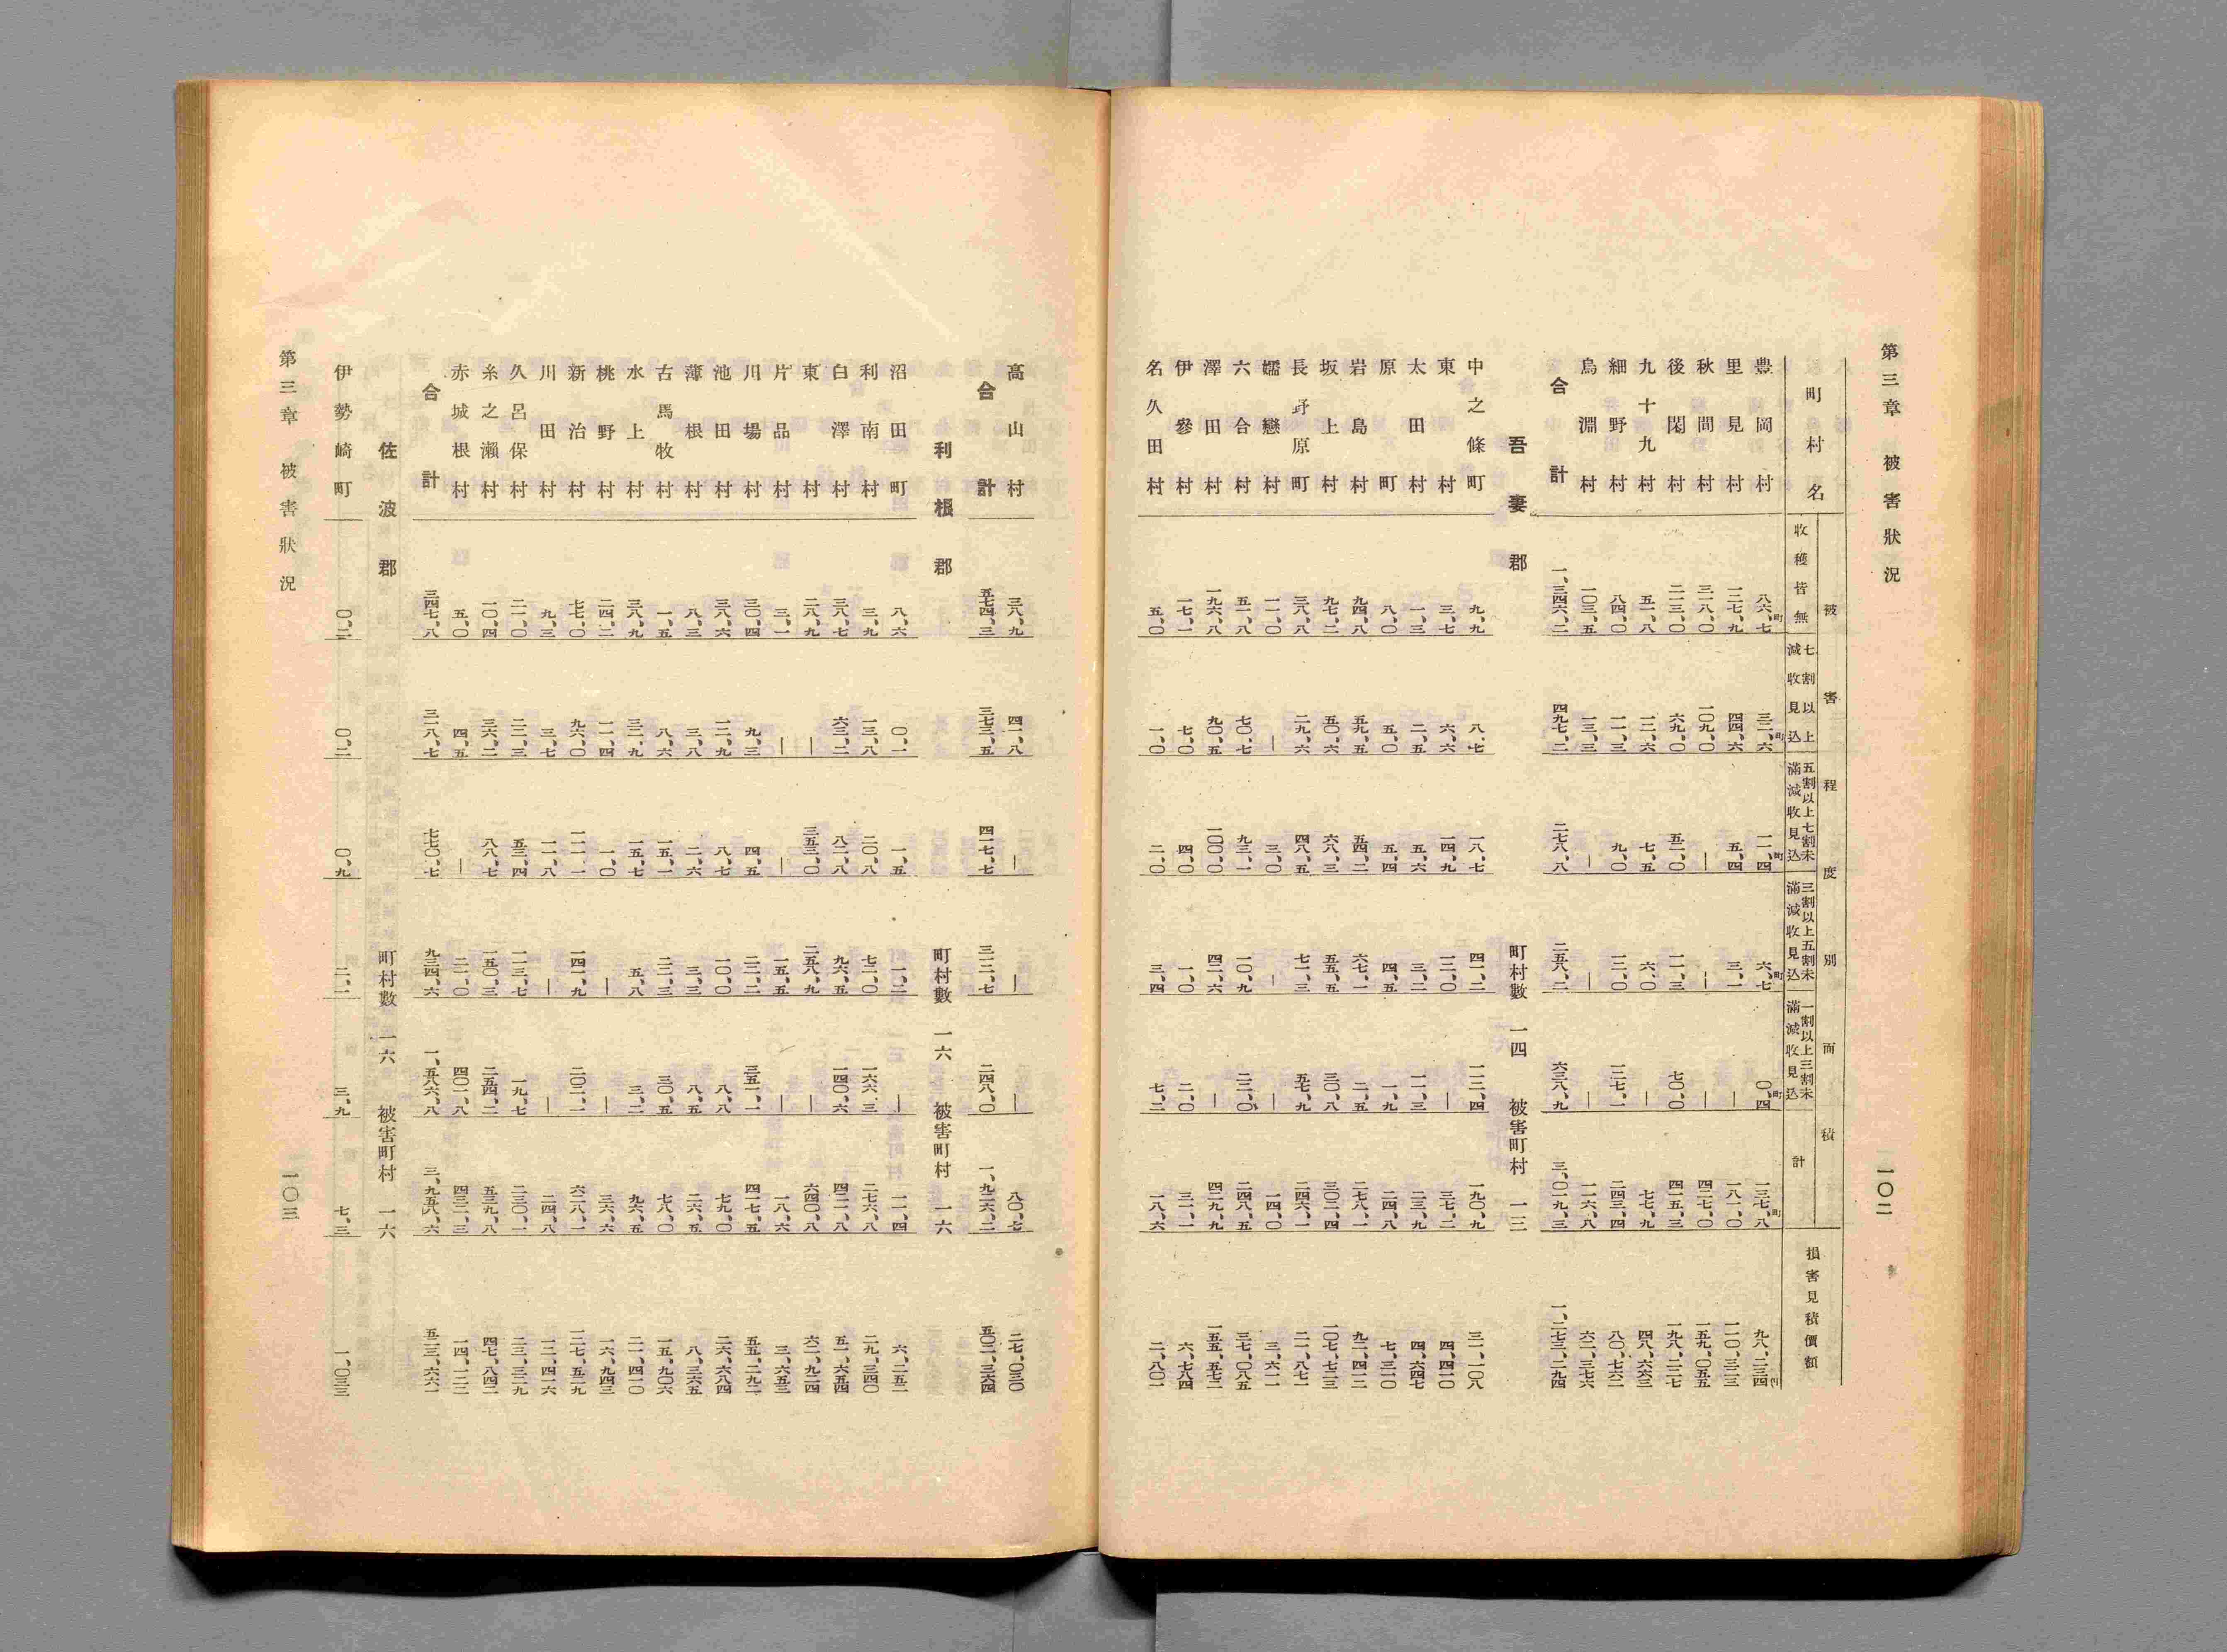 第三章 被害狀況 一〇二
町村名 被害程度別面積 損害見積價額
收穫皆無 七割以上減收見込 五割以上七割未滿減收見込 三割以上五割未滿減收見込 一割以上三割未滿減收見込 計
豊岡村 八六、七町 三二、六町 一一、四町 六、七町 〇、四町 一三七、八町 九八、二三四円
里見村 一二七、九 四四、六 五、四 三、一 — 一八一、〇 一一〇、三二三
秋間村 三一八、〇 一〇九、〇 — — — 四二七、〇 一五九、〇五五
後閑村 二一三、〇 六九、〇 五二、〇 一一、三 七〇、〇 四一五、三 一九八、二二七
九十九村 五一、八 一二、六 七、五 六、〇 — 七七、九 四八、六六三
細野村 八四、〇 一一、三 九、〇 一二、〇 一二七、一 二四三、四 八〇、七六二
烏淵村 一〇三、五 一三、三 — — — 一一六、八 六二、三七六
合計 一、三四六、二 四九七、二 二七八、八 二五八、二 六三八、九 三、〇一九、三 一、二七三、二九四
吾妻郡 町村數 一四 被害町村 一三
中之條町 九、九 八、七 一八、七 四一、二 一一二、四 一九〇、九 三一、一〇八
東村 三、七 六、六 一四、九 一二、〇 — 三七、二 四、四一〇
太田村 一、三 二、五 五、六 三、二 一一、三 二三、九 四、六四七
原町 八、〇 五、〇 五、四 四、五 一、九 二四、八 七、三一〇
岩島村 九四、八 五九、五 五四、二 六七、一 二、五 二七八、一 九二、四一二
坂上村 九七、二 五〇、六 六八、三 五五、五 三〇、八 三〇二、四 一〇七、七二三
長野原町 三八、八 二九、六 四八、五 七一、三 五七、九 二四六、一 二一、八七一
嬬戀村 一一、〇 — 三、〇 — — 一四、〇 三、六一一
六合村 五一、八 七〇、七 九三、一 一〇、九 二二、〇 二四八、五 三七、〇八五
澤田村 一九六、八 九〇、五 一〇〇、〇 四二、六 — 四二九、九 一五五、五七二
伊參村 一七、一 七、〇 四、〇 一、〇 二、〇 三一、一 六、七八四
名久田村 五、〇 一、〇 二、〇 三、四 七、二 一八、六 二、八〇一
高山村 三八、九 四一、八 — — — 八〇、七 二七、〇三〇
合計 五七四、三 三七三、五 四一七、七 三一二、七 二四八、〇 一、九二六、二 五〇二、三六四
利根郡 町村數 一六 被害町村 一六
沼田町 八、六 〇、一 一、五 一、二 — 一一、四 六、二五二
利南村 三、九 一三、八 二〇、八 七二、〇 一六六、三 二七六、八 二九、三四〇
白澤村 三八、七 六三、二 八二、八 九六、五 一四〇、六 四二一、八 五一、六五四
東村 二八、九 — 三五三、〇 二五八、九 — 六四〇、八 六二、九二四
片品村 三、一 — — 一五、五 — 一八、六 三、六五三
川場村 三〇、四 九、三 四、五 二二、二 三五一、一 四一七、五 五五、二九二
池田村 三八、六 一二、九 八、七 一〇、〇 八、八 七九、〇 二六、六八四
薄根村 八、三 三、八 二、六 三、三 八、五 二六、五 八、三六五
古馬牧村 一、五 八、六 一五、一 二二、三 三〇、五 七八、〇 一五、九〇六
水上村 三八、九 三二、九 一五、七 五、八 三、二 九六、五 二一、四一〇
桃野村 二四、二 一一、四 一、〇 — — 三六、六 一六、九四三
新治村 七七、〇 九六、〇 一一一、一 一四一、九 二〇二、一 六二八、一 一二七、五二九
川田村 九、三 三、七 一一、八 — — 二四、八 一二、四一六
久呂保村 二一、〇 二二、三 五三、四 一一三、七 一九、七 二三〇、一 二三、三二九
糸之瀨村 一〇、四 三六、二 八八、七 一五〇、三 二五四、二 五三九、八 四七、八四二
赤城根村 五、〇 四、五 — 二一、〇 四〇一、八 四三二、三 一四、一二二
合計 三四七、八 三一八、七 七七〇、七 九三四、六 一、五八六、八 三、九五八、六 五二三、六六一
佐波郡 町村數 一六 被害町村 一六
伊勢崎町 〇、二 〇、二 〇、九 二、一 三、九 七、三 一、〇三三
第三章 被害狀況 一〇三